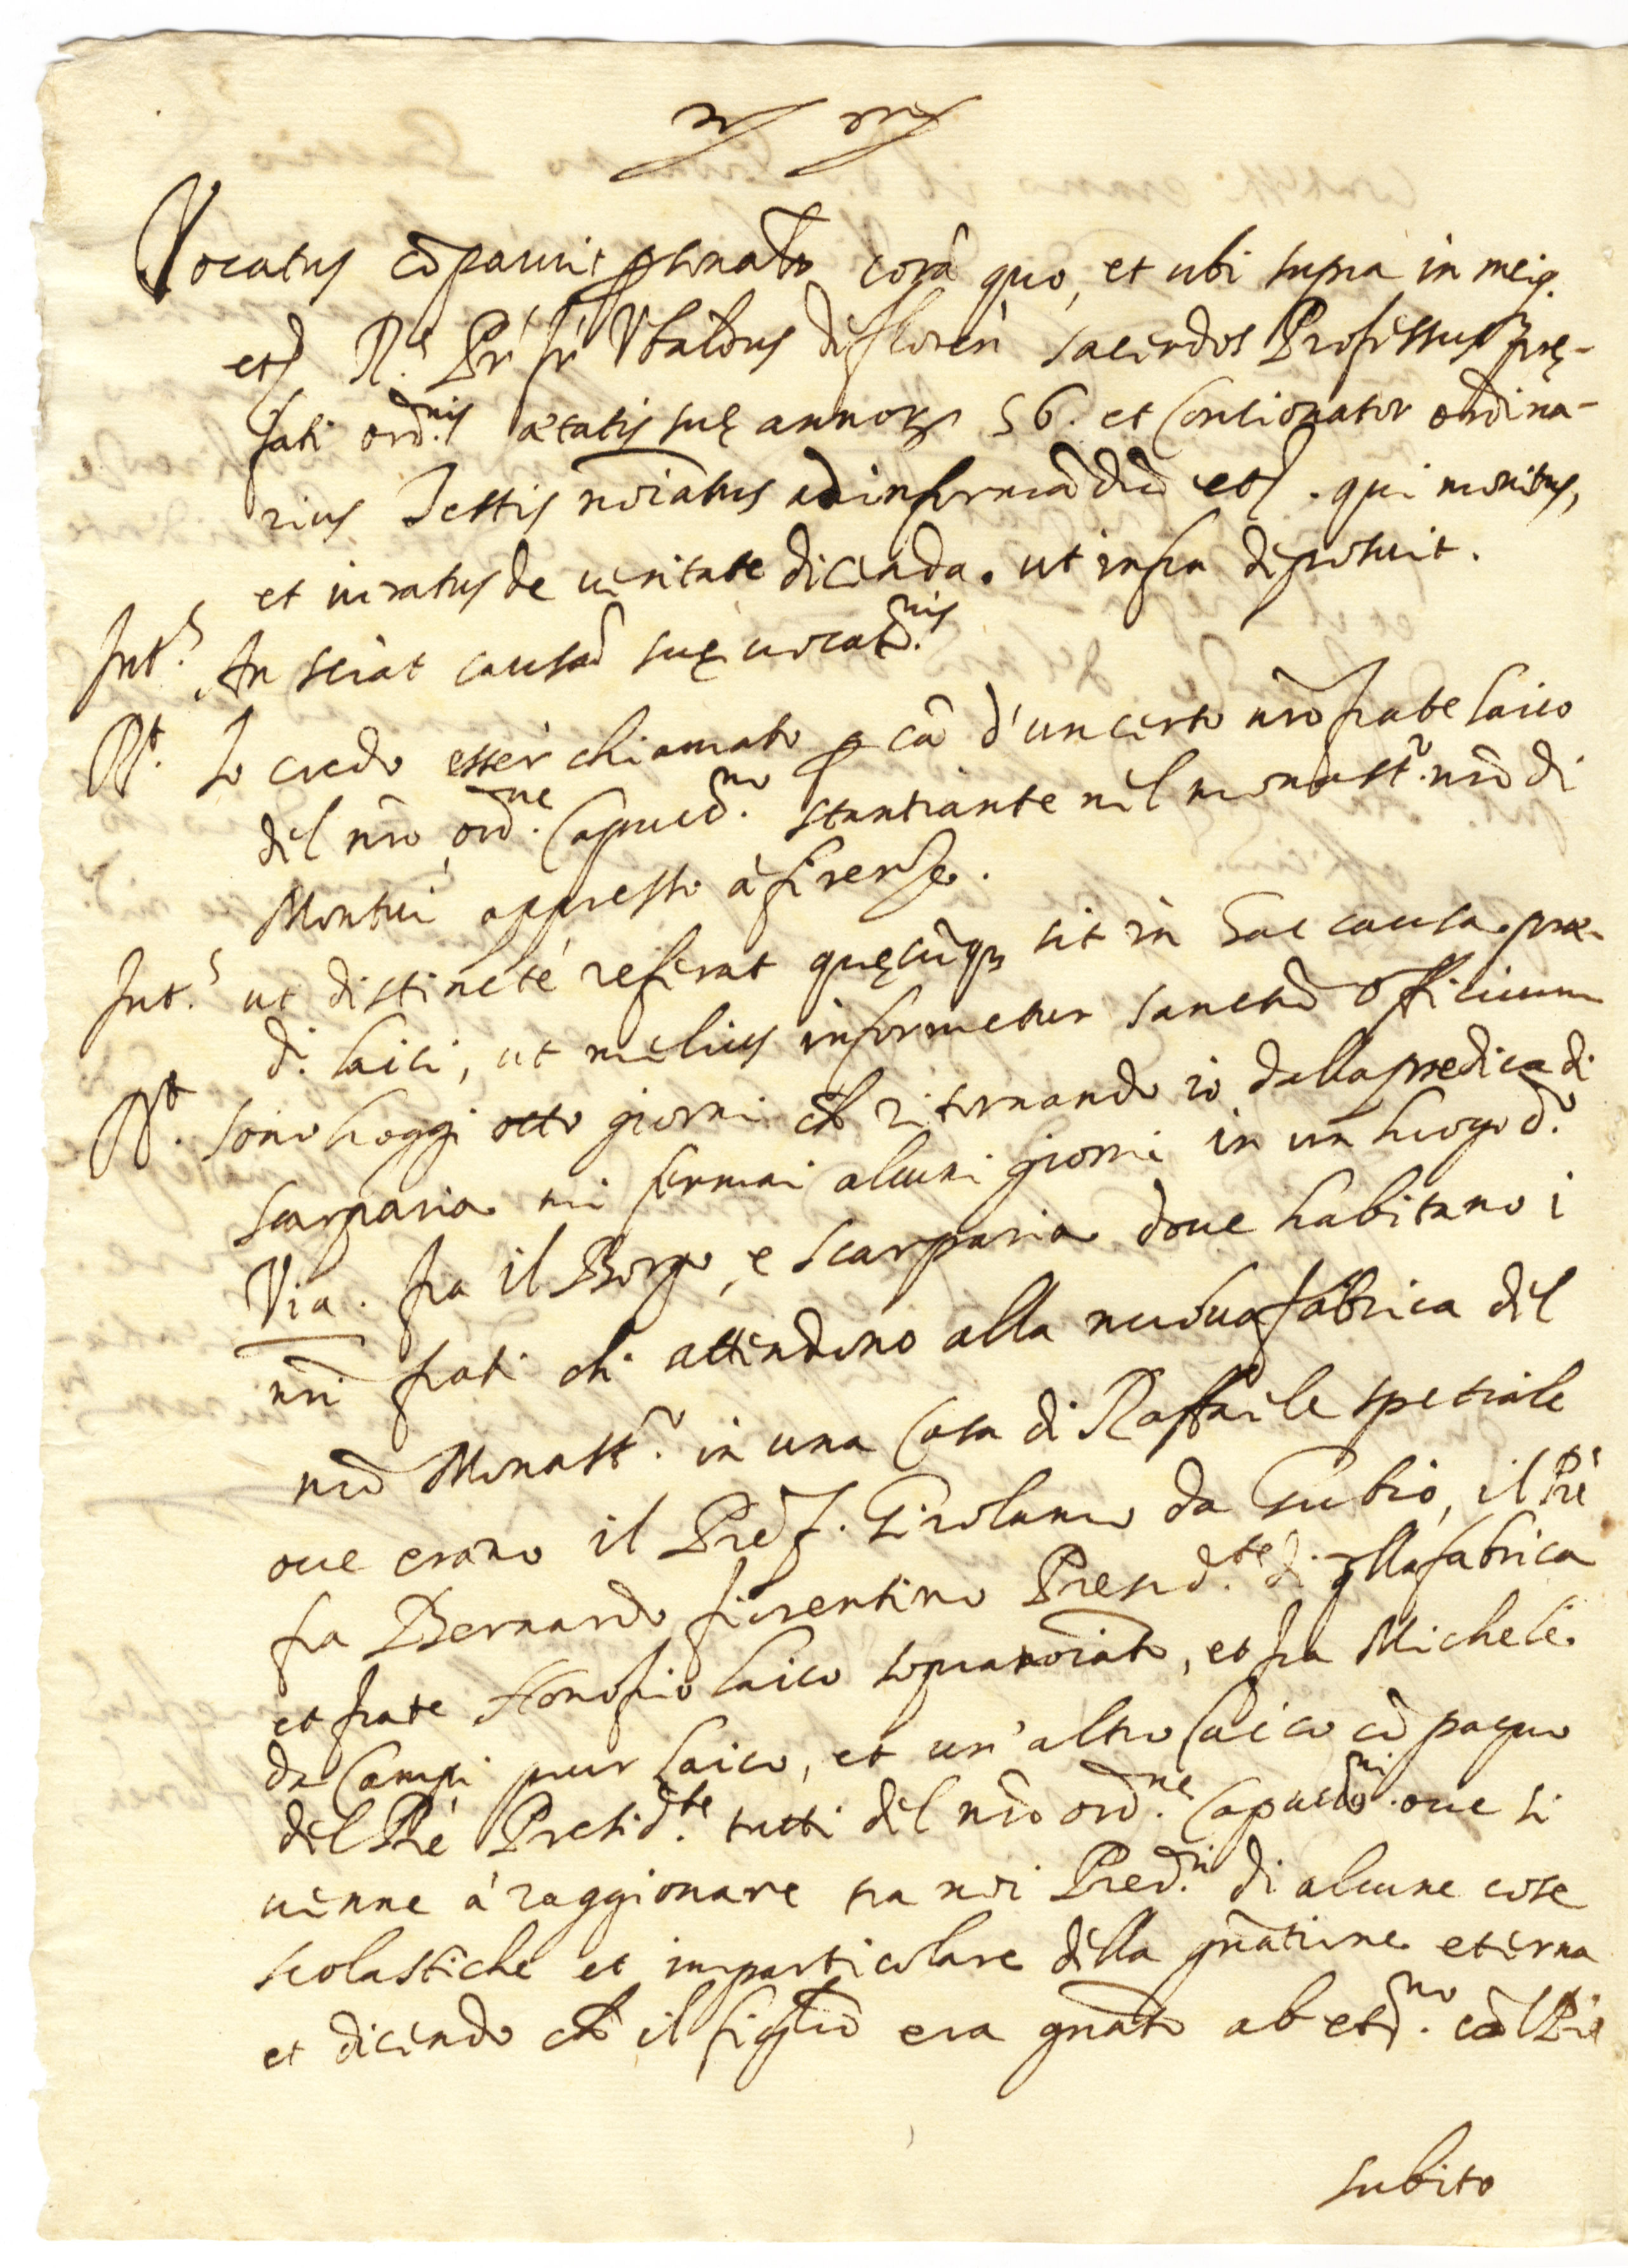 Vocatus cõparuit psonalr corã quo, et ubi supra in meiq.
etc. R.s Pr' fr' Vbaldus de Floren' sacerdos Professus prę-
fati ord.nis ætatis suę annorũ 56. et Concionator ordina-
rius Testis noĩatus ad informãdũ etc. qui monitus,
et iuratus de ueritate dicenda. ut infra deposuit.
Int.s An sciat causã suę uocat.nis
R.t Io credo esser chiamato p cã d'un certo nrõ frate laico
del nrõ ord.ne Capucc.no stantiante nel monast.o nrõ di
Montui appresso à firenze.
Int.s ut distincté referat quęcũq; sit in hac causa præ-
d. laici, ut melius informetur sanctũ officium
R.t sono hoggi otto giorni ch ritornando io dalla predica di
Scarparia mi fermai alcuni giorni in un luogo d.o
Via. fra il Borgo, e Scarparia doue habitano i
nri frati ch attendono alla nuoua fabrica del
nrõ Monast.o in una Casa di Raffaele spetiale
oue erano il Pred.r f. Girolamo da Gubio, il Prè
fra Bernardo fiorentino Presid.te di qlla fabrica
et frate Honofrio laico sopranoĩato, et fra Michele
da Campi pur laico, et un'altro laico cõpagno
del Prè Presid.te tutti del nrõ ord.ne Capucc.ni oue si
uenne à raggionare tra noi Pred.ri di alcune cose
scolastiche et imparticolare della gnãtione eterna
et dicendo ch il figliõ era gnãto ab et.no cõl Prè
subito